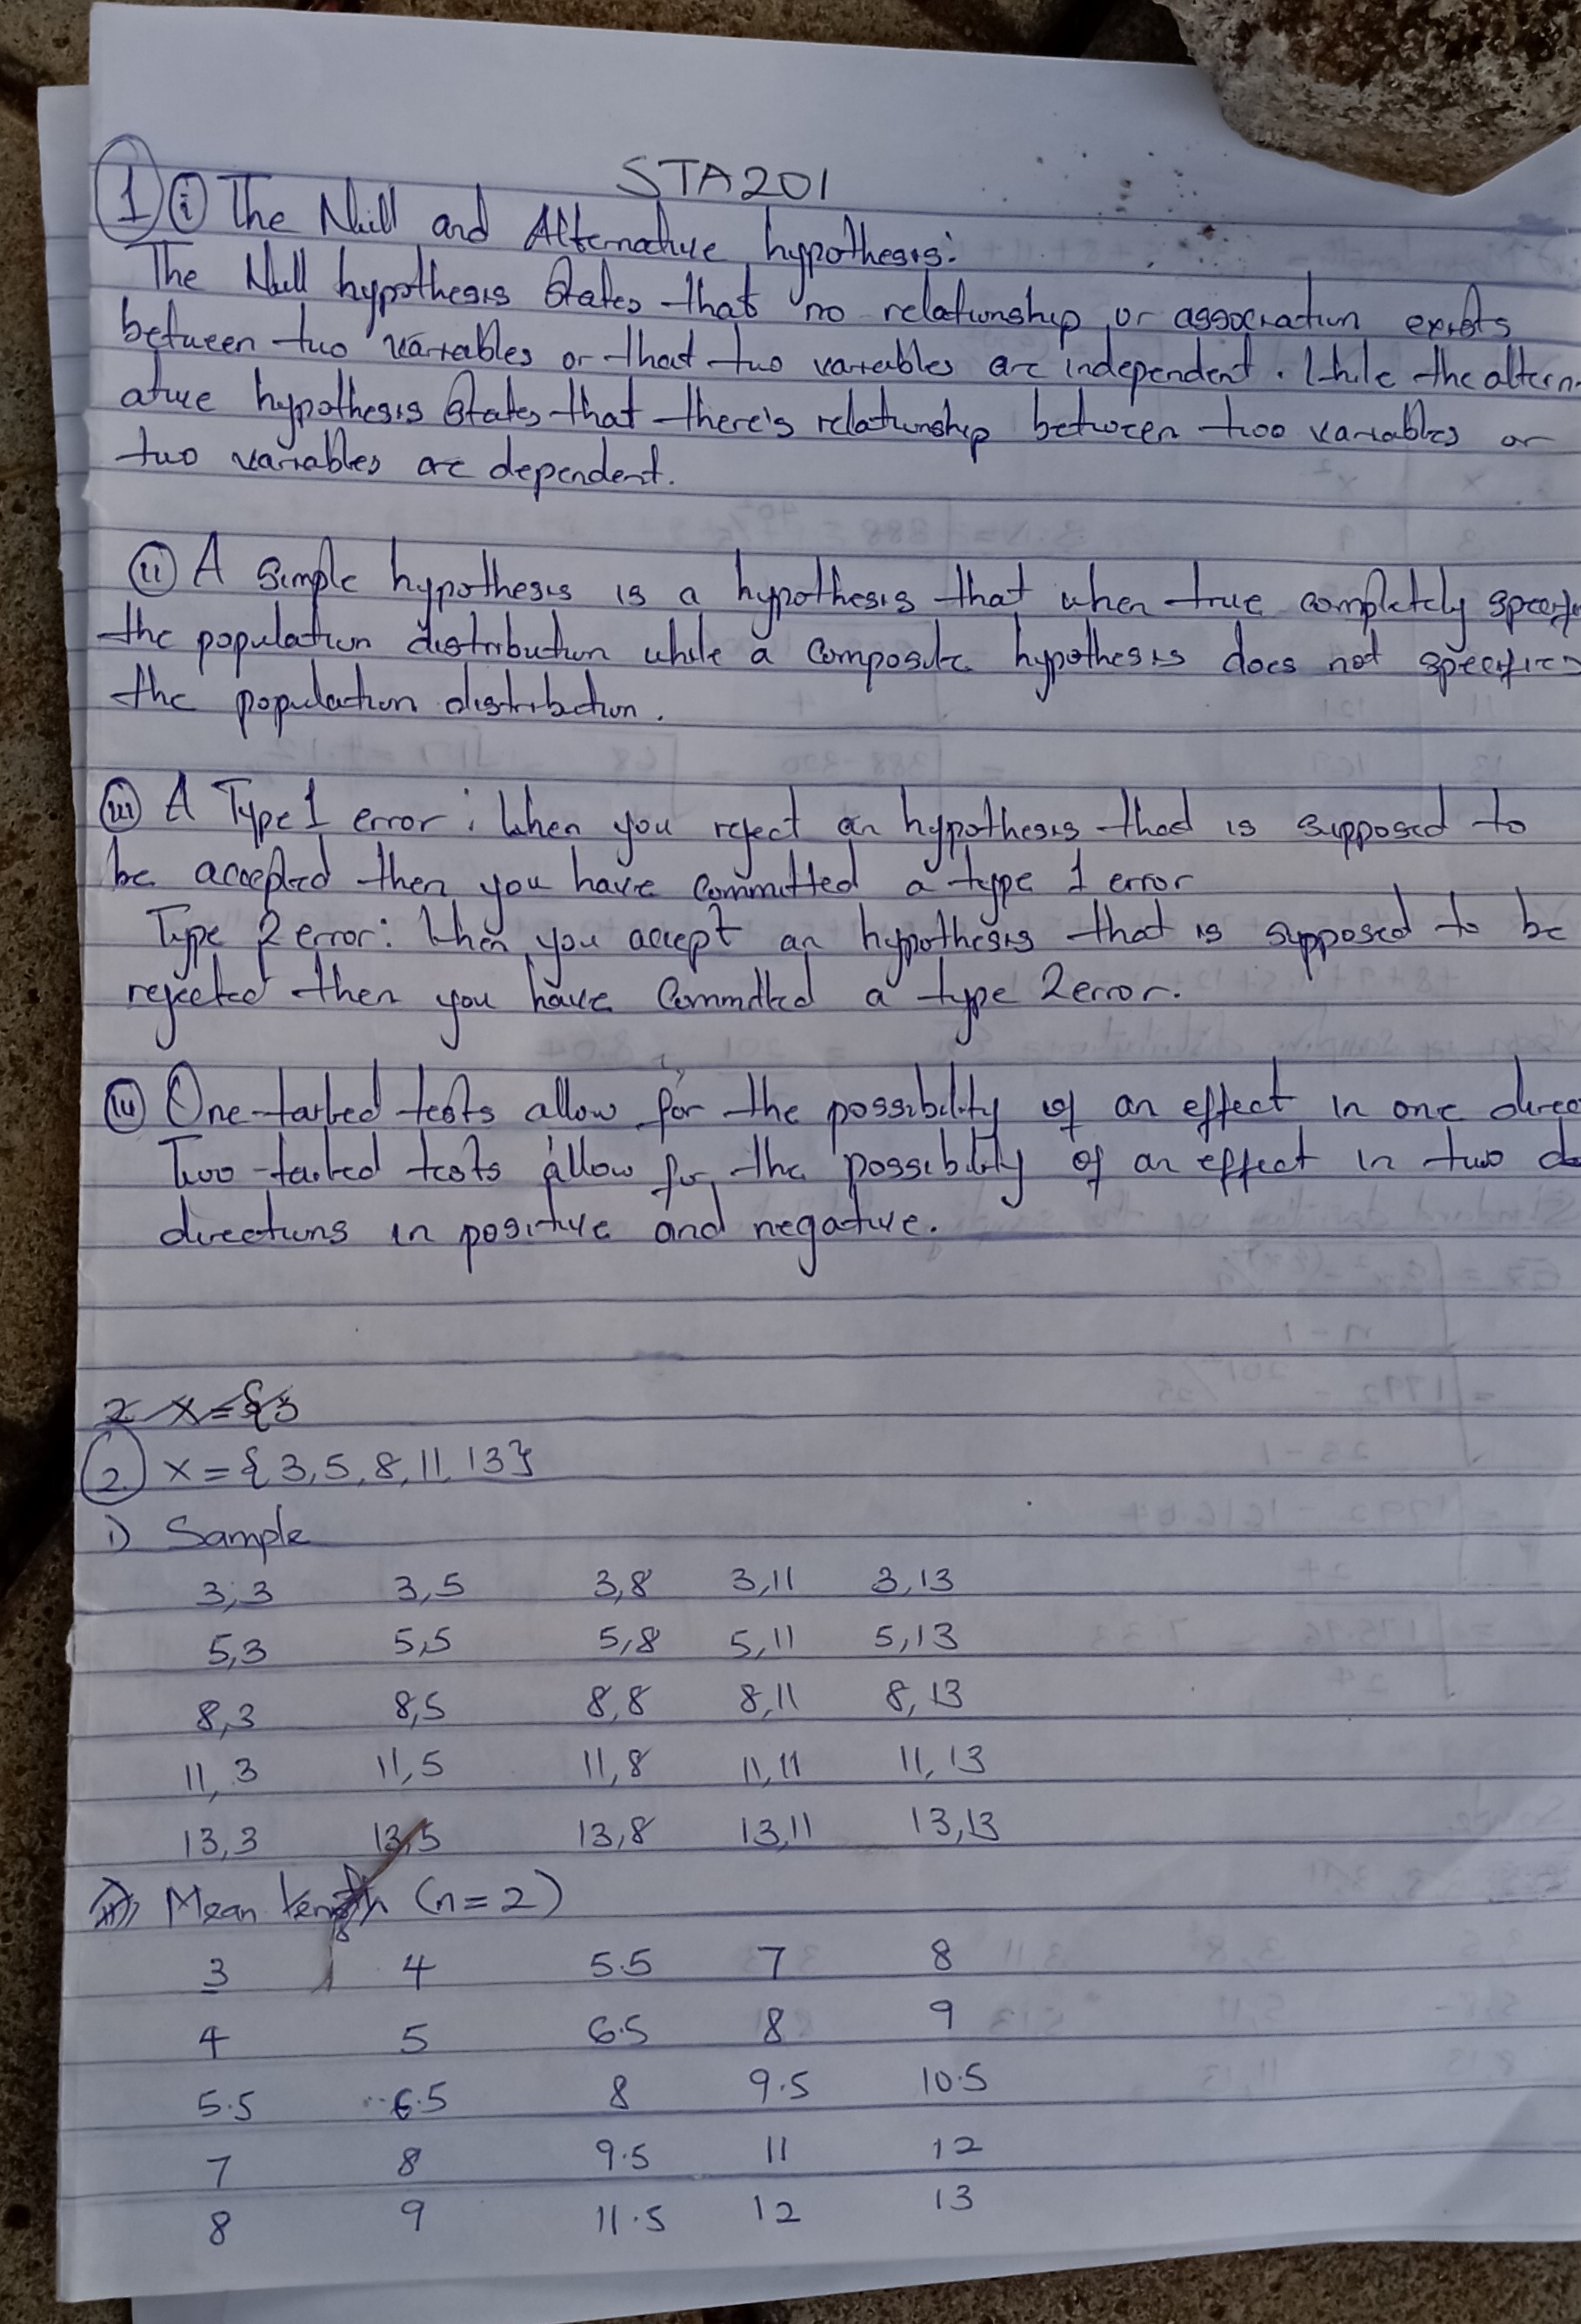 STA201
1 i The Null and Alternative hypothesis:
The Null hypothesis States that no relationship or association exists
between two variables or that two variables are independent. While the altern-
ative hypothesis States that there's relationship between two variables or
two variables are dependent.
ii A simple hypothesis is a hypothesis that when true completely
the population distribution while a Composite hypothesis does not specifies
the population distribution.
iii A Type 1 error: When you reject an hypothesis that is supposed to
be accepted then you have committed a type 1 error
Type 2 error: When you accept an hypothesis that is supposed to be
rejected then you have Committed a type 2 error.
iv One-tailed tests allow for the possibility of an effect in one
Two-tailed tests allow for the possibility of an effect in two d
directions in positive and negative.
2 x={3
2. x={3,5,8,11,13}
i) Sample
3,3 3,5 3,8 3,11 3,13
5,3 5,5 5,8 5,11 5,13
8,3 8,5 8,8 8,11 8,13
11,3 11,5 11,8 11,11 11,13
13,3 13,5 13,8 13,11 13,13
Mean (n=2)
3 4 5.5 7 8
4 5 6.5 8 9
5.5 6.5 8 9.5 10.5
7 8 9.5 11 12
8 9 11.5 12 13